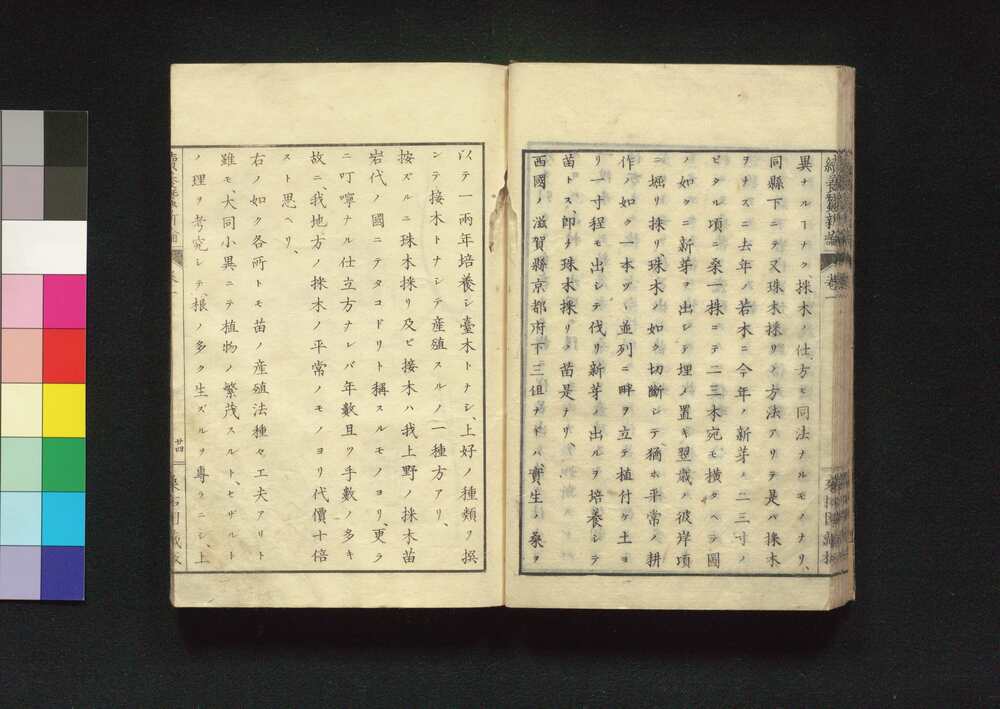 異ナルヿナク、採木ノ仕方モ同法ナルモノナリ、
同縣下ニテ又珠木採リノ方法アリテ是ハ採木
ヲナスニ去年ノ若木ニ今年ノ新芽ノ二三寸ノ
ビタル頃ニ桑一株ニテ二三本宛モ横タヘテ圖
ノ如クニ新芽ヲ出シテ埋メ置キ翌歳ノ彼岸頃
ニ堀リ採リ珠木ノ如ク切斷シテ猶ホ平常ノ耕
作ノ如ク一本ヅヽ並列ニ畔ヲ立テ植付ケ土ヨ
リ一寸程モ出シテ伐リ新芽ノ出ルヲ培養シテ
苗トス、即チ珠木採リノ苗是ナリ、
西國ノ滋賀縣京都府下三但ナドハ實生ノ桑ヲ
以テ一兩年培養シ臺木トナシ、上好ノ種類ヲ撰
ンテ接木トナシテ産殖スルノ一種方アリ、
按ズルニ珠木採リ及ビ接木ハ我上野ノ採木苗
岩代ノ國ニテタコドリト稱スルモノヨリ、更ラ
ニ叮嚀ナル仕立方ナレバ年數且ツ手數ノ多キ
故ニ、我地方ノ採木ノ平常ノモノヨリ代價十倍
スト思ヘリ、
右ノ如ク各所トモ苗ノ産殖法種々工夫アリト
雖モ、大同小異ニテ植物ノ繁茂スルト、セザルト
ノ理ヲ考究シテ、根ノ多ク生ズルヲ專ラニシ、上
廿四